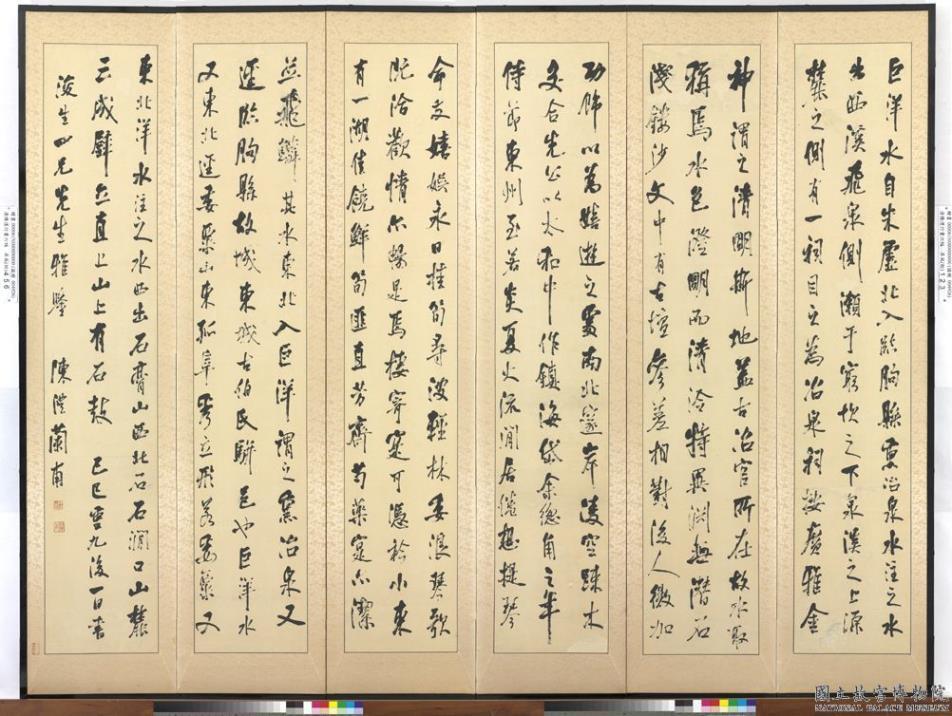 巨洋水自朱虛北入臨朐縣熏冶泉水注之水
出西溪飛泉側瀨于窮坎之下泉溪之上源
麓之側有一祠目之為冶泉祠按廣雅金
神謂之清明斯地蓋古冶官所在故水取
稱焉水色澄明而清泠特異淵無潛石
淺鏤沙文中有古壇參差相對後人微加
功飾以為嬉遊之處南北邃岸凌空疎木
交合先公以太和中作鎮海岱余總角之年
侍節東州至若炎夏火流閒居倦想提琴
命友嬉娛永日桂筍尋波輕林委浪琴歌
既洽歡情亦暢是焉棲寄寔可憑衿小東
有一湖佳饒鮮筍匪直芳齊芍藥寔亦潔
並飛鱗其水東北入巨洋謂之熏冶泉又
逕臨朐縣故城東城古伯氏駢邑也巨洋水
又東北逕委粟山東孤阜秀立形若委粟又
東北洋水注之水西出石膏山西北石石澗口山麓
三成壁立直上山上有石鼓 己巳重九後一日書
浚生四兄先生雅鑒 陳澧蘭甫
國立故宮博物院
NATIONAL PALACE MUSEUM